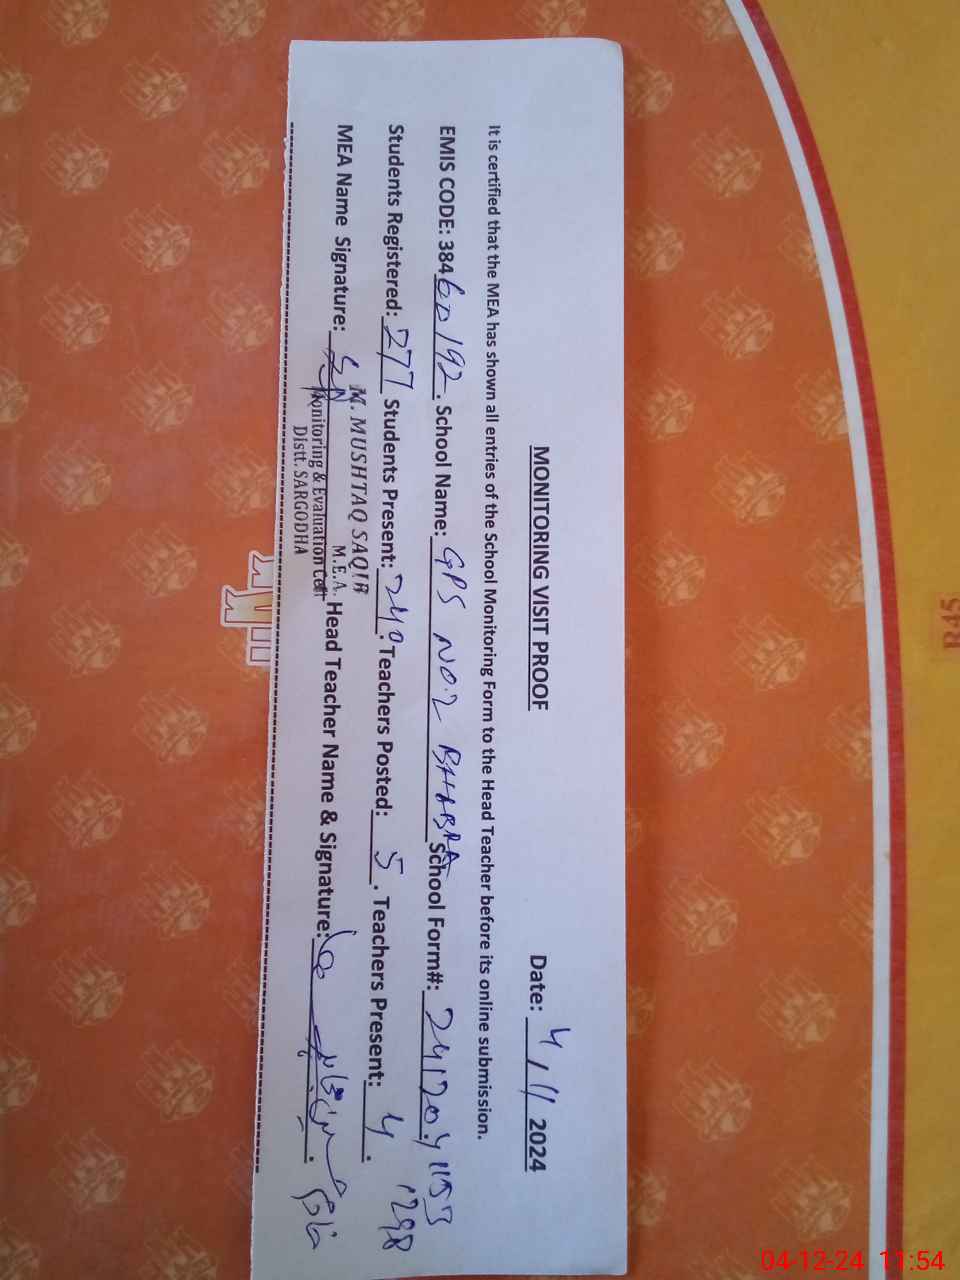 MONITORING VISIT PROOF
Date: 4/11 2024
It is certified that the MEA has shown all entries of the School Monitoring Form to the Head Teacher before its online submission.
EMIS CODE: 38460192. School Name: GPS NO.2 BHABRA School Form#: 241204 1153
1298
Students Registered: 277 Students Present: 240. Teachers Posted: 5. Teachers Present: 4.
MEA Name Signature:
M. MUSHTAQ SAQIB
M.E.A.
Monitoring & Evaluation Cell
Distt. SARGODHA
Head Teacher Name & Signature:
R45
04-12-24 11:54